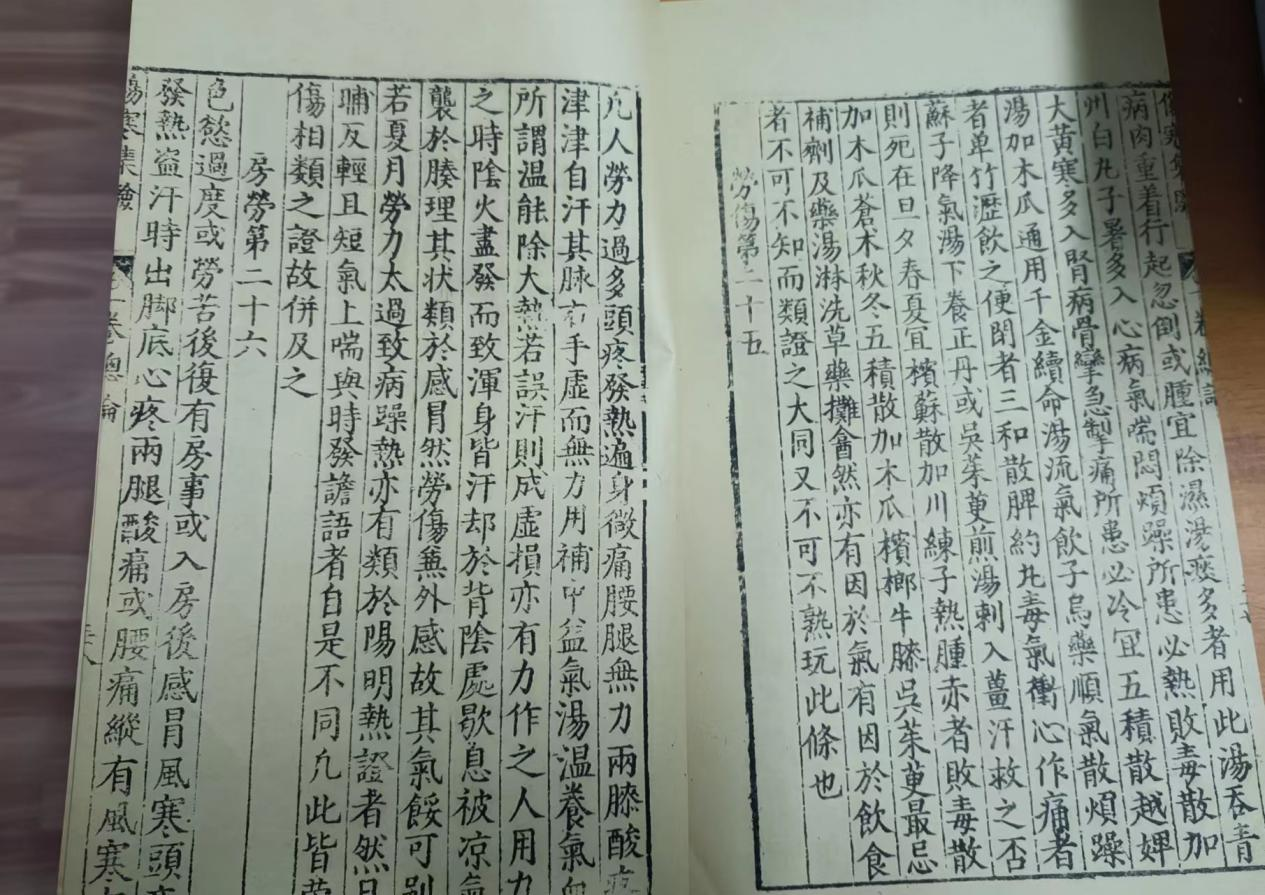 病肉重着行起忽倒或腫宜除濕湯痰多者用此湯吞青
州白丸子暑多入心病氣喘悶煩躁所患必熱敗毒散加
大黃寒多入腎病骨攣急掣痛所患必冷宜五積散越婢
湯加木瓜通用千金續命湯流氣飲子烏藥順氣散煩躁
者单竹瀝飲之便閉者三和散脾約丸毒氣衝心作痛者
蘇子降氣湯下養正丹或吳茱萸煎湯剌入薑汗救之否
則死在旦夕春夏宜檳蘇散加川練子熱腫赤者敗毒散
加木瓜蒼木秋冬五積散加木瓜檳榔牛膝吳茱萸最忌
補劑及藥湯淋洗草藥攤䑪然亦有因於氣有因於飲食
者不可不知而類證之大同又不可不熟玩此條也
勞傷第二十五
凡人勞力過多頭疼發熱遍身微痛腰腿無力兩膝酸疼
津津自汗其脉右手虛而無力用補中益氣湯溫養氣血
所謂温能除大熱若誤汗則成虛損亦有力作之人用力
之時陰火盡發而致渾身皆汗却於背陰處歇息被凉氣
襲於腠理其状類於感冐然勞傷無外感故其氣餒可别
若夏月勞力太過致病躁熱亦有類於陽明熱證者然日
晡反輕且短氣上喘與時發譫語者自是不同凢此皆
傷相類之證故併及之
房勞第二十六
色慾過度或勞苦後復有房事或入房後感冐風寒頭
發熱盗汗時出脚底心疼兩腿酸痛或腰痛縱有風寒
傷寒集驗
卷總論